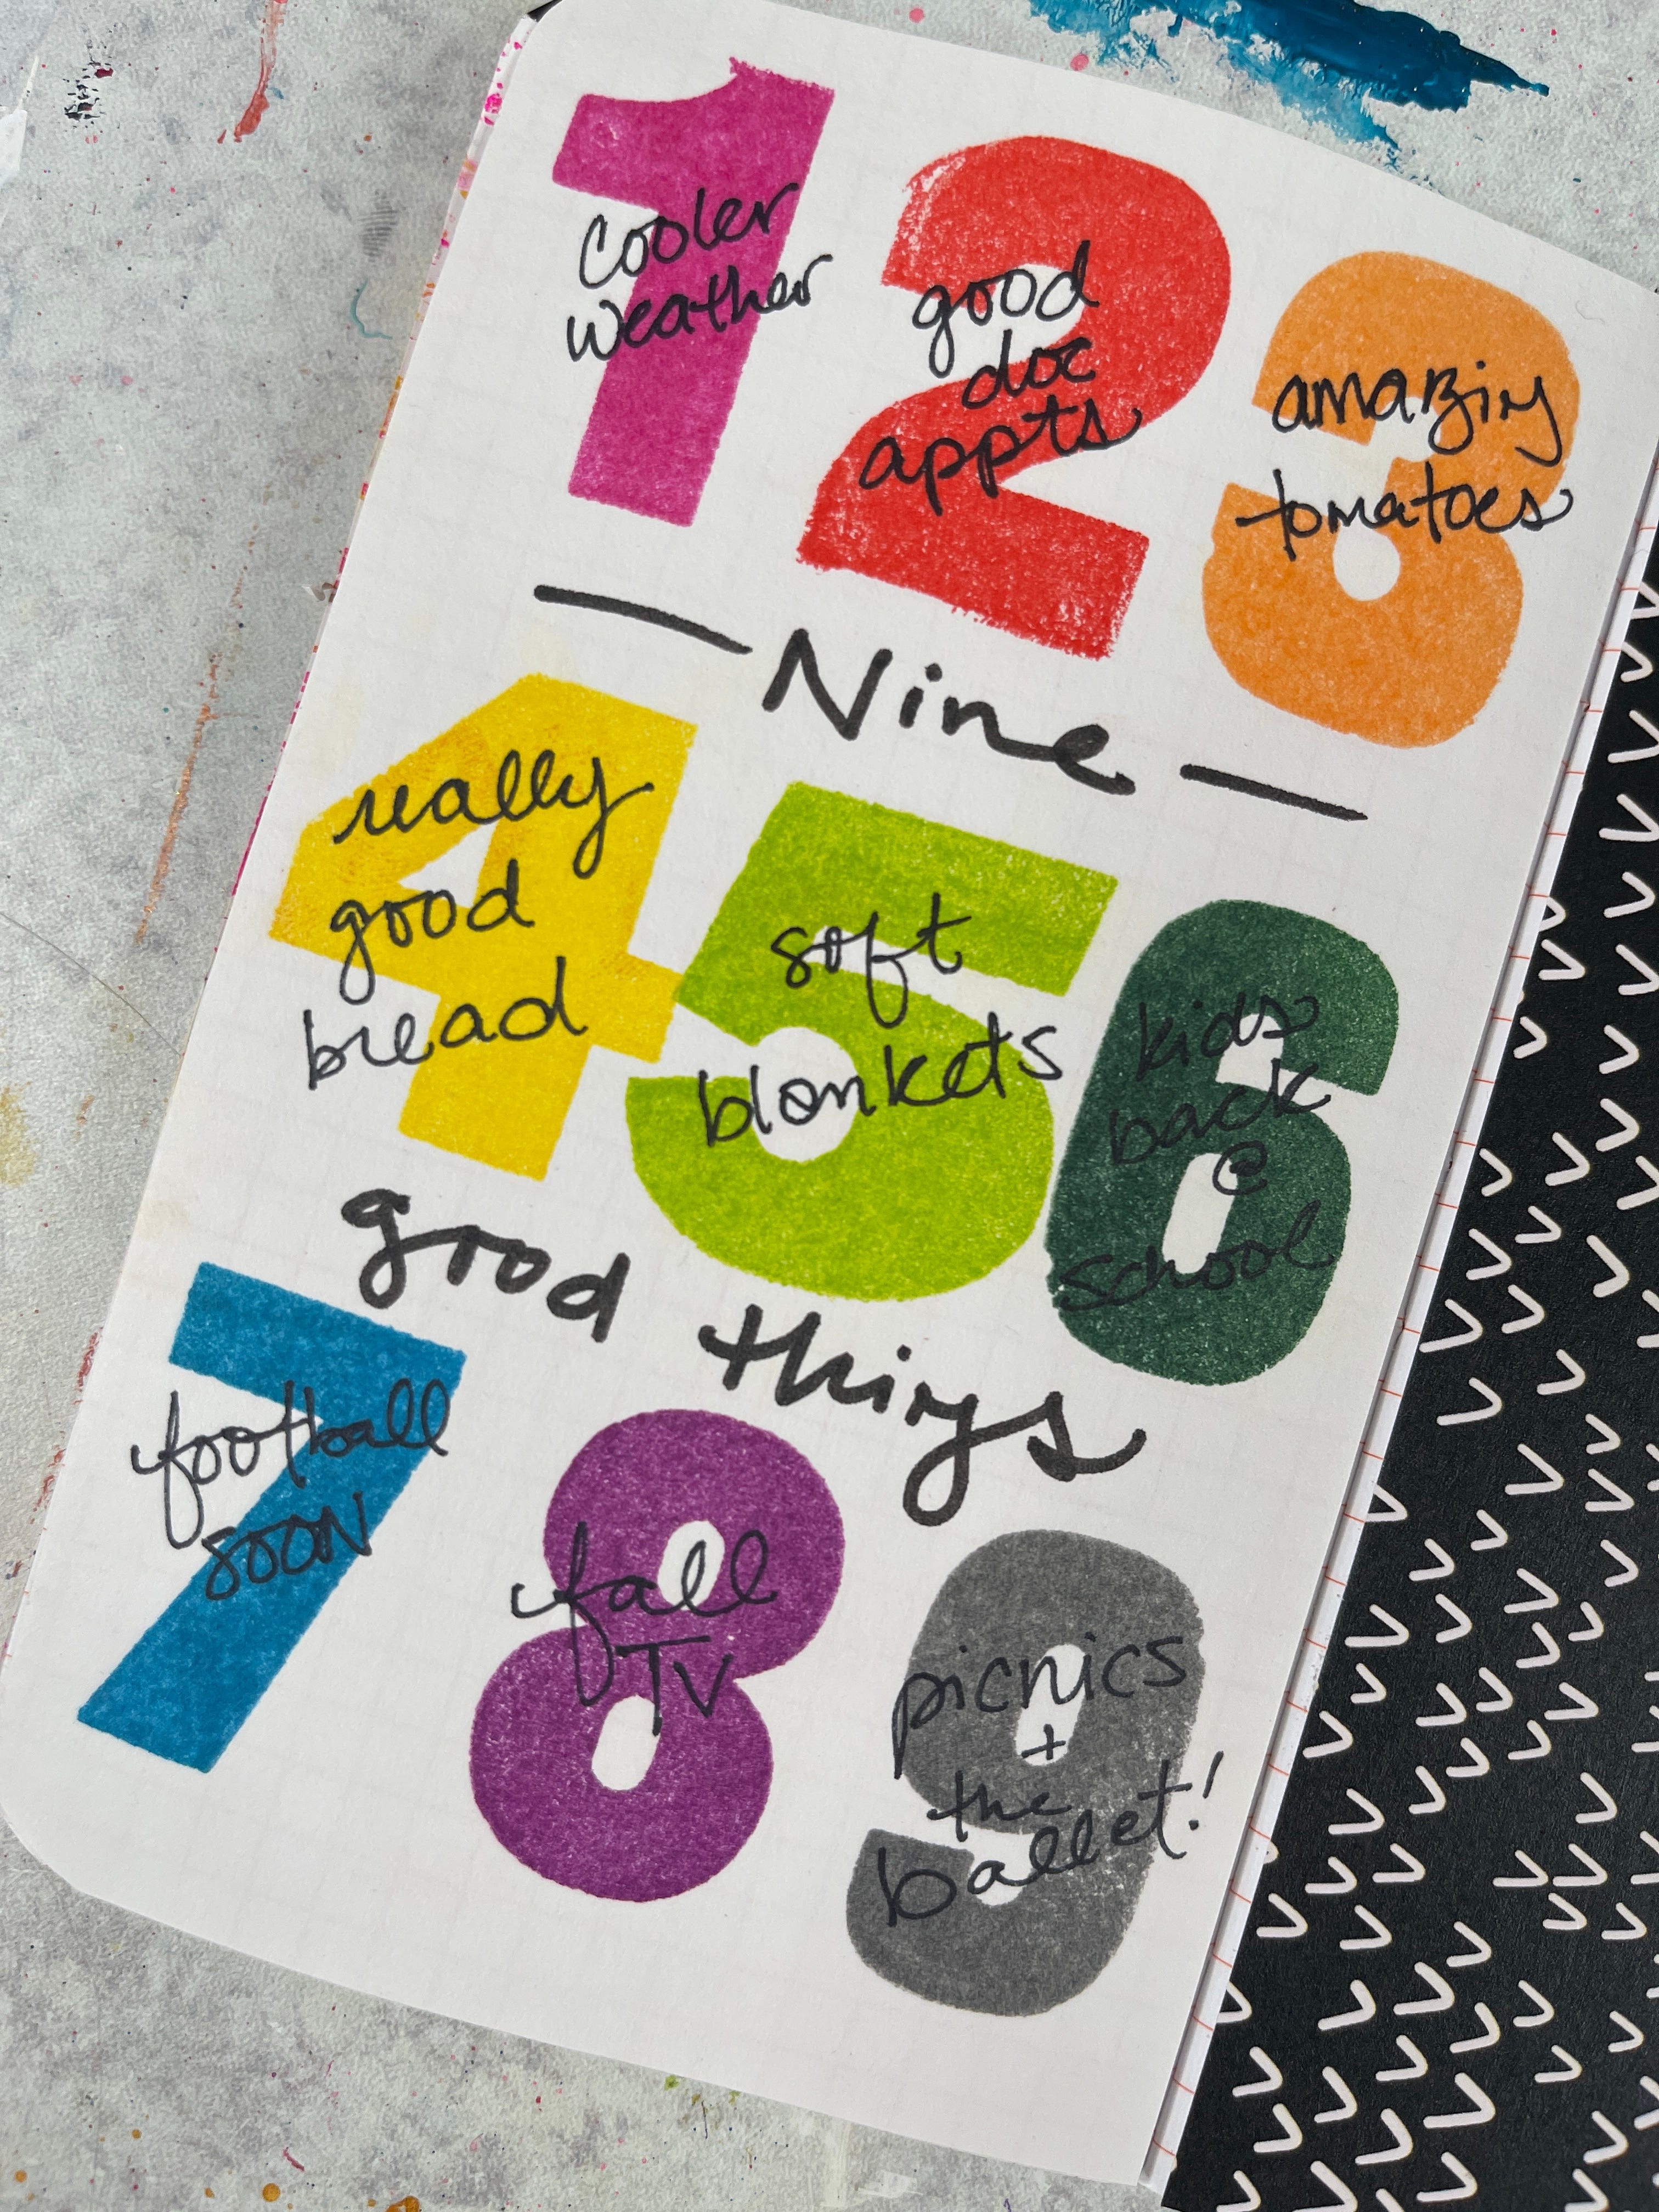 1
cooler
weather
2
good
doc
appts
3
amazing
tomatoes
— Nine —
4
really
good
bread
5
soft
blankets
6
kids
back
@
school
good things
7
football
soon
8
fall
TV
9
picnics
+
the
ballet!